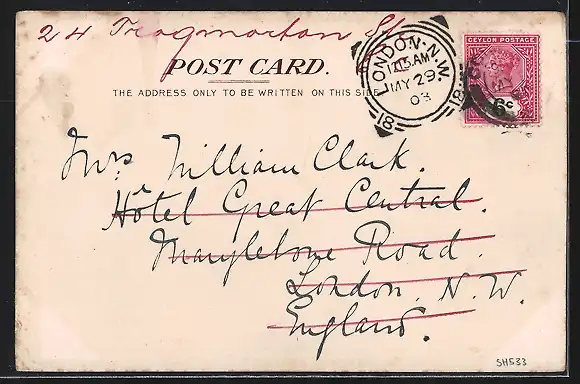 24 Trogmorton St
POST CARD.
THE ADDRESS ONLY TO BE WRITTEN ON THIS SIDE
LONDON. N.W.
12.15 AM
MY 29
03
18 18
CEYLON POSTAGE
6c
Mrs William Clark.
Hôtel Great Central.
Marylebone Road.
London. N.W.
England.
SH533